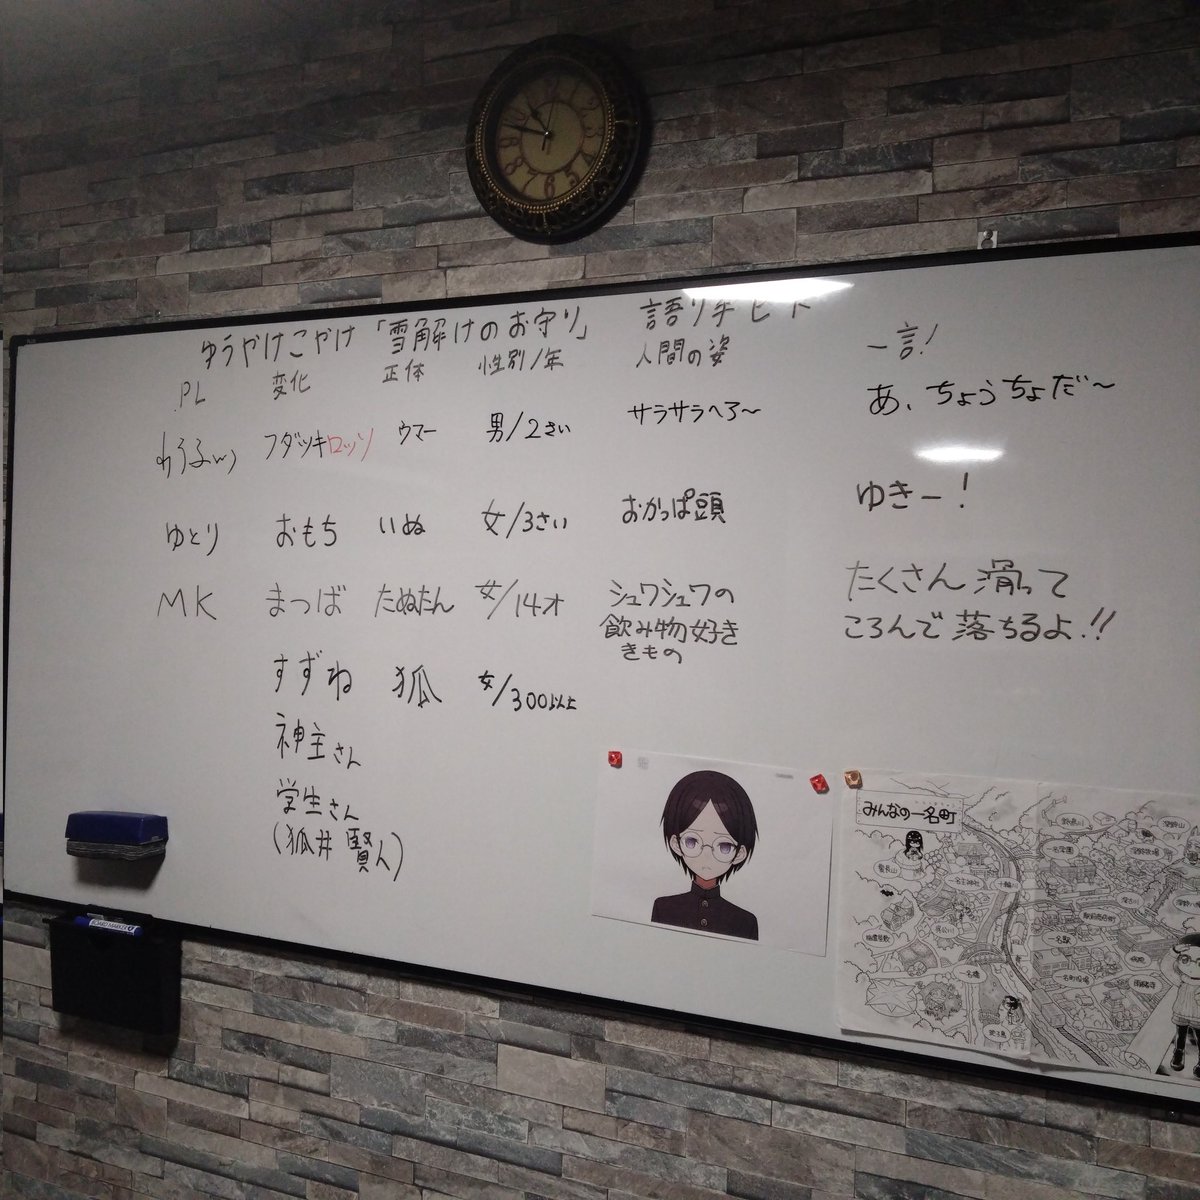 ゆうやけこやけ「雪解けのお守り」 語り手 ヒト
PL 変化 正体 性別/年 人間の姿 一言!
わうふぃ フダツキロッソ ウマー 男/2さい サラサラヘアー あ、ちょうちょだ~
ゆとり おもち いぬ 女/3さい おかっぱ頭 ゆきー!
MK まつば たぬたん 女/14才 シュワシュワの
飲み物好き
きもの
たくさん滑って
ころんで落ちるよ!!
すずね 狐 女/300以上
神主さん
学生さん
(狐井 賢人)
みんなの一名町
BOARD MARKER
一名神社
十輪川
名橋
一名駅
病院